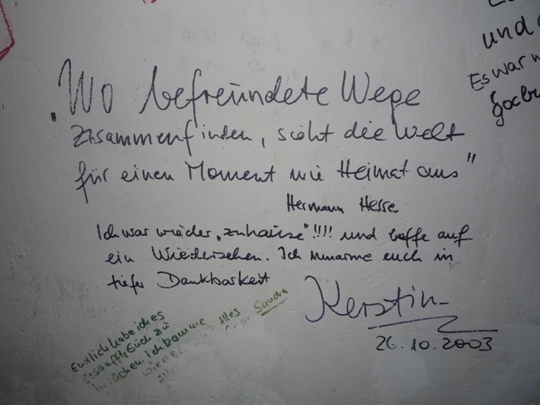 „Wo befreundete Wege
zusammenfinden, sieht die Welt
für einen Moment wie Heimat aus"
Hermann Hesse
Ich war wieder „zuhause" !!!! und hoffe auf
ein Wiedersehen. Ich umarme euch in
tiefer Dankbarkeit
Kerstin
26.10.2003
Endlich habe ich es
geschafft, Euch zu
besuchen. Ich komme
wieder
Alles
Sandra
und
Es war